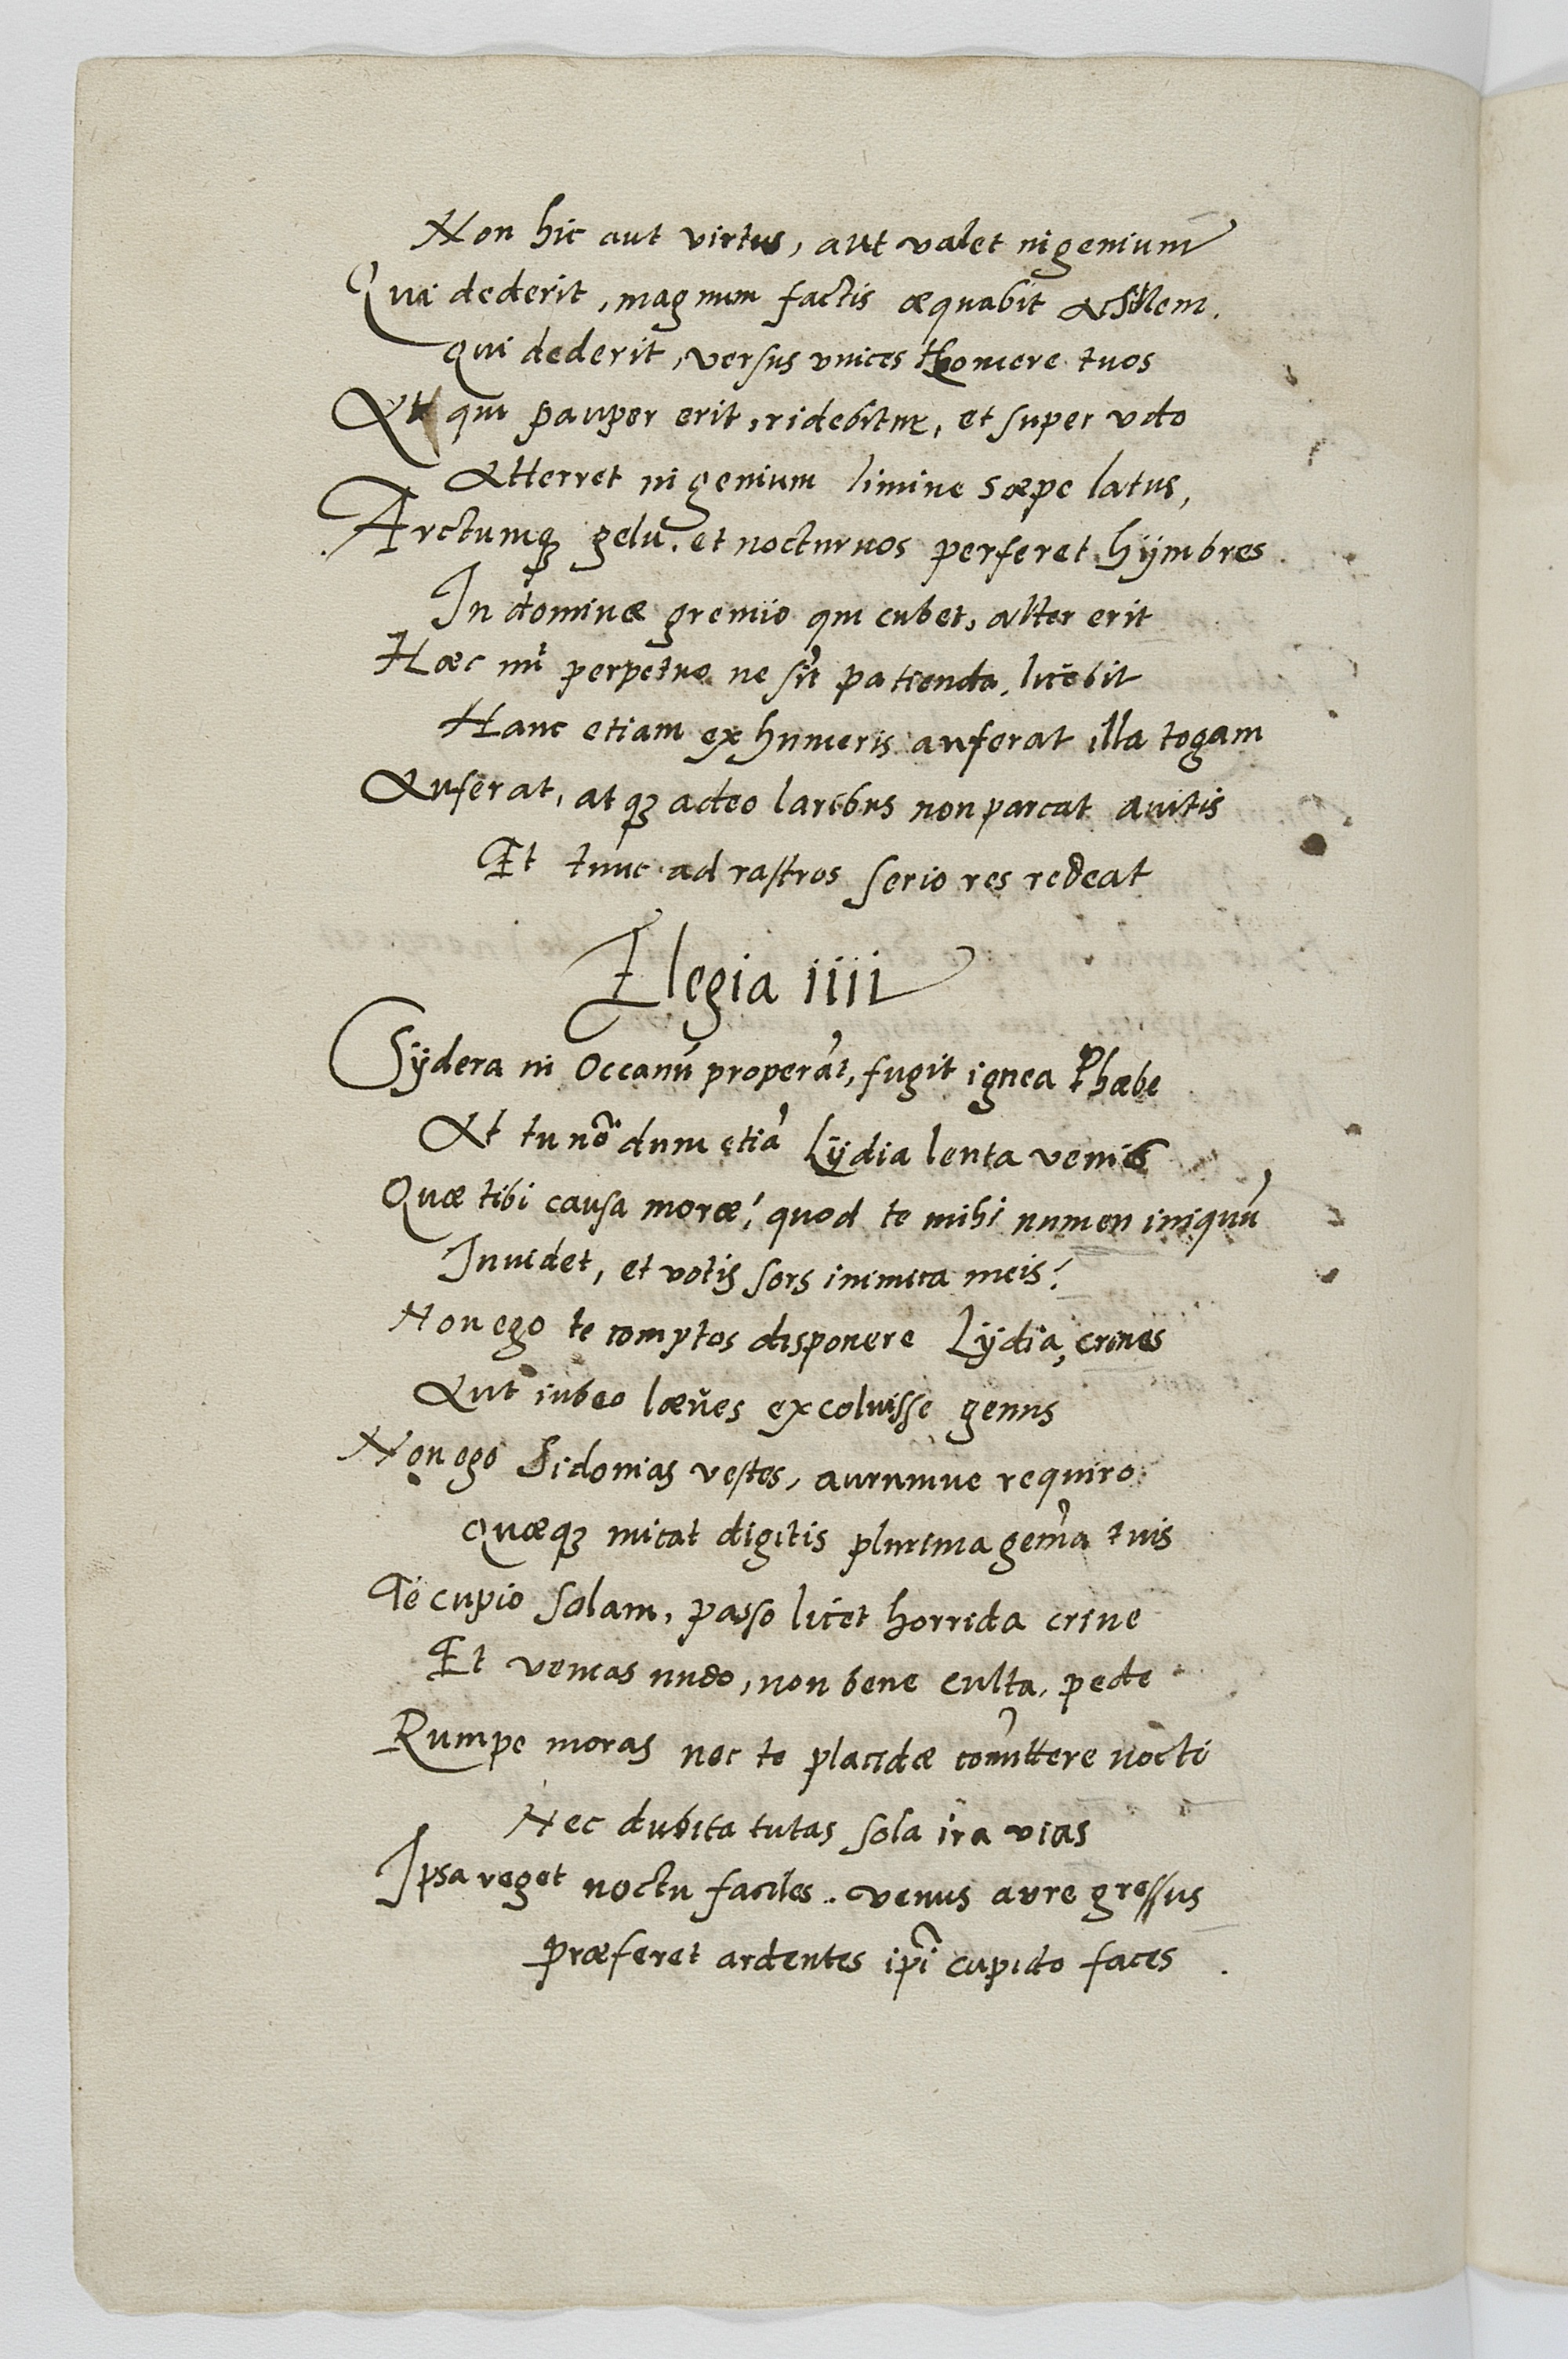 Non hic aut virtus, aut valet ingenium
Qui dederit, magnum factis æquabit Achillem.
qui dederit, versus vinces Homere tuos
At qui pauper erit, ridebitur, et super udo
Atterret ingenium limine sæpe latus,
Arctumqꝫ gelu, et nocturnos perferet hÿmbres
In dominæ gremio qui cubet, alter erit
Hæc mi perpetuo ne sit patienda, licebit
Hanc etiam ex humeris auferat illa togam
Auferat, atqꝫ adeo laribus non parcat avitis
Et tunc ad rastros serio res redeat
Elegia iiii
Sÿdera in Oceanū properāt, fugit ignea Phæbe
At tu nō dum etiā Lÿdia lenta venis
Quæ tibi causa moræ? quod te mihi numen iniquū
Invidet, et votis sors inimica meis?
Non ego te comptos disponere Lÿdia, crines
Aut iubeo læves excoluisse genus
Non ego Sidonias vestes, aurumve requiro
Quæqꝫ micat digitis plurima gem̄a tuis
Te cupio solam, passo licet horrida crine
Et venias nudo, non bene culta, pede
Rumpe moras nec te placidæ com̄ittere nocti
Nec dubita tutas sola ire vias
Ipsa reget noctu faciles. venus aure gressus
Præferet ardentes ip̄i cupido faces.